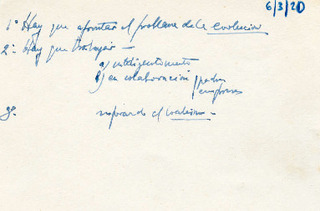 6/3/20
1º Hay que afrontar el problema de la evolución
2º Hay que trabajar —
a) inteligentemente
b) en colaboración
3º